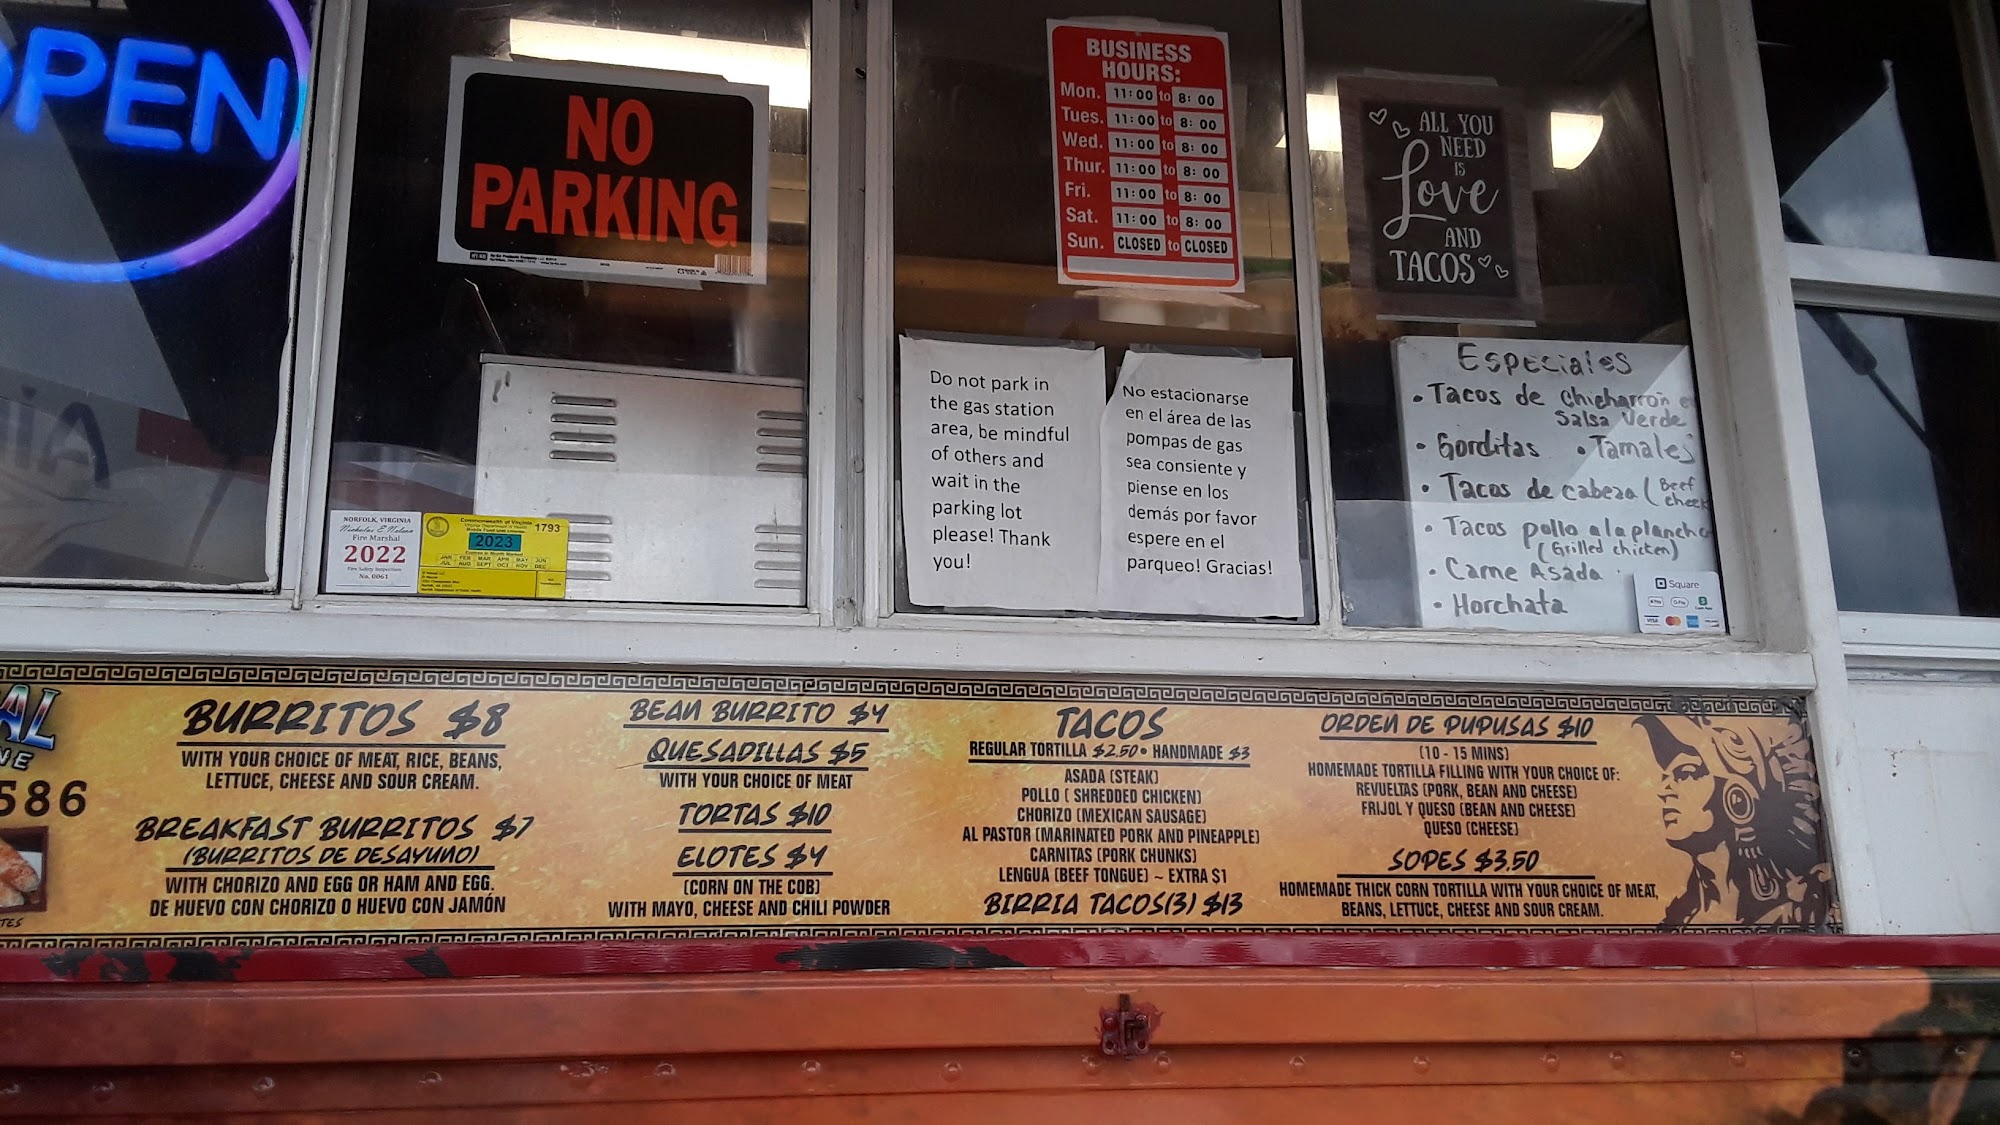 OPEN
NO
PARKING
BUSINESS
HOURS:
Mon. 11:00 to 8:00
Tues. 11:00 to 8:00
Wed. 11:00 to 8:00
Thur. 11:00 to 8:00
Fri. 11:00 to 8:00
Sat. 11:00 to 8:00
Sun. CLOSED to CLOSED
ALL YOU
NEED
IS
Love
AND
TACOS
Do not park in
the gas station
area, be mindful
of others and
wait in the
parking lot
please! Thank
you!
No estacionarse
en el área de las
pompas de gas
sea consiente y
piense en los
demás por favor
espere en el
parqueo! Gracias!
Especiales
• Tacos de chicharron
Salsa Verde
• Gorditas • Tamales
• Tacos de cabeza (Beef
cheek
• Tacos pollo a la plancha
(Grilled chicken)
• Carne Asada
• Horchata
Square
VISA
NORFOLK, VIRGINIA
Fire Marshal
2022
Fire Safety Inspection
No. 0061
Commonwealth of Virginia
1793
2023
JAN FEB MAR APR MAY JUN
JUL AUG SEPT OCT NOV DEC
586
BURRITOS $8
WITH YOUR CHOICE OF MEAT, RICE, BEANS,
LETTUCE, CHEESE AND SOUR CREAM.
BREAKFAST BURRITOS $7
(BURRITOS DE DESAYUNO)
WITH CHORIZO AND EGG OR HAM AND EGG.
DE HUEVO CON CHORIZO O HUEVO CON JAMÓN
BEAN BURRITO $4
QUESADILLAS $5
WITH YOUR CHOICE OF MEAT
TORTAS $10
ELOTES $4
(CORN ON THE COB)
WITH MAYO, CHEESE AND CHILI POWDER
TACOS
REGULAR TORTILLA $2.50 • HANDMADE $3
ASADA (STEAK)
POLLO ( SHREDDED CHICKEN)
CHORIZO (MEXICAN SAUSAGE)
AL PASTOR (MARINATED PORK AND PINEAPPLE)
CARNITAS (PORK CHUNKS)
LENGUA (BEEF TONGUE) ~ EXTRA $1
BIRRIA TACOS(3) $13
ORDEN DE PUPUSAS $10
(10 - 15 MINS)
HOMEMADE TORTILLA FILLING WITH YOUR CHOICE OF:
REVUELTAS (PORK, BEAN AND CHEESE)
FRIJOL Y QUESO (BEAN AND CHEESE)
QUESO (CHEESE)
SOPES $3.50
HOMEMADE THICK CORN TORTILLA WITH YOUR CHOICE OF MEAT,
BEANS, LETTUCE, CHEESE AND SOUR CREAM.